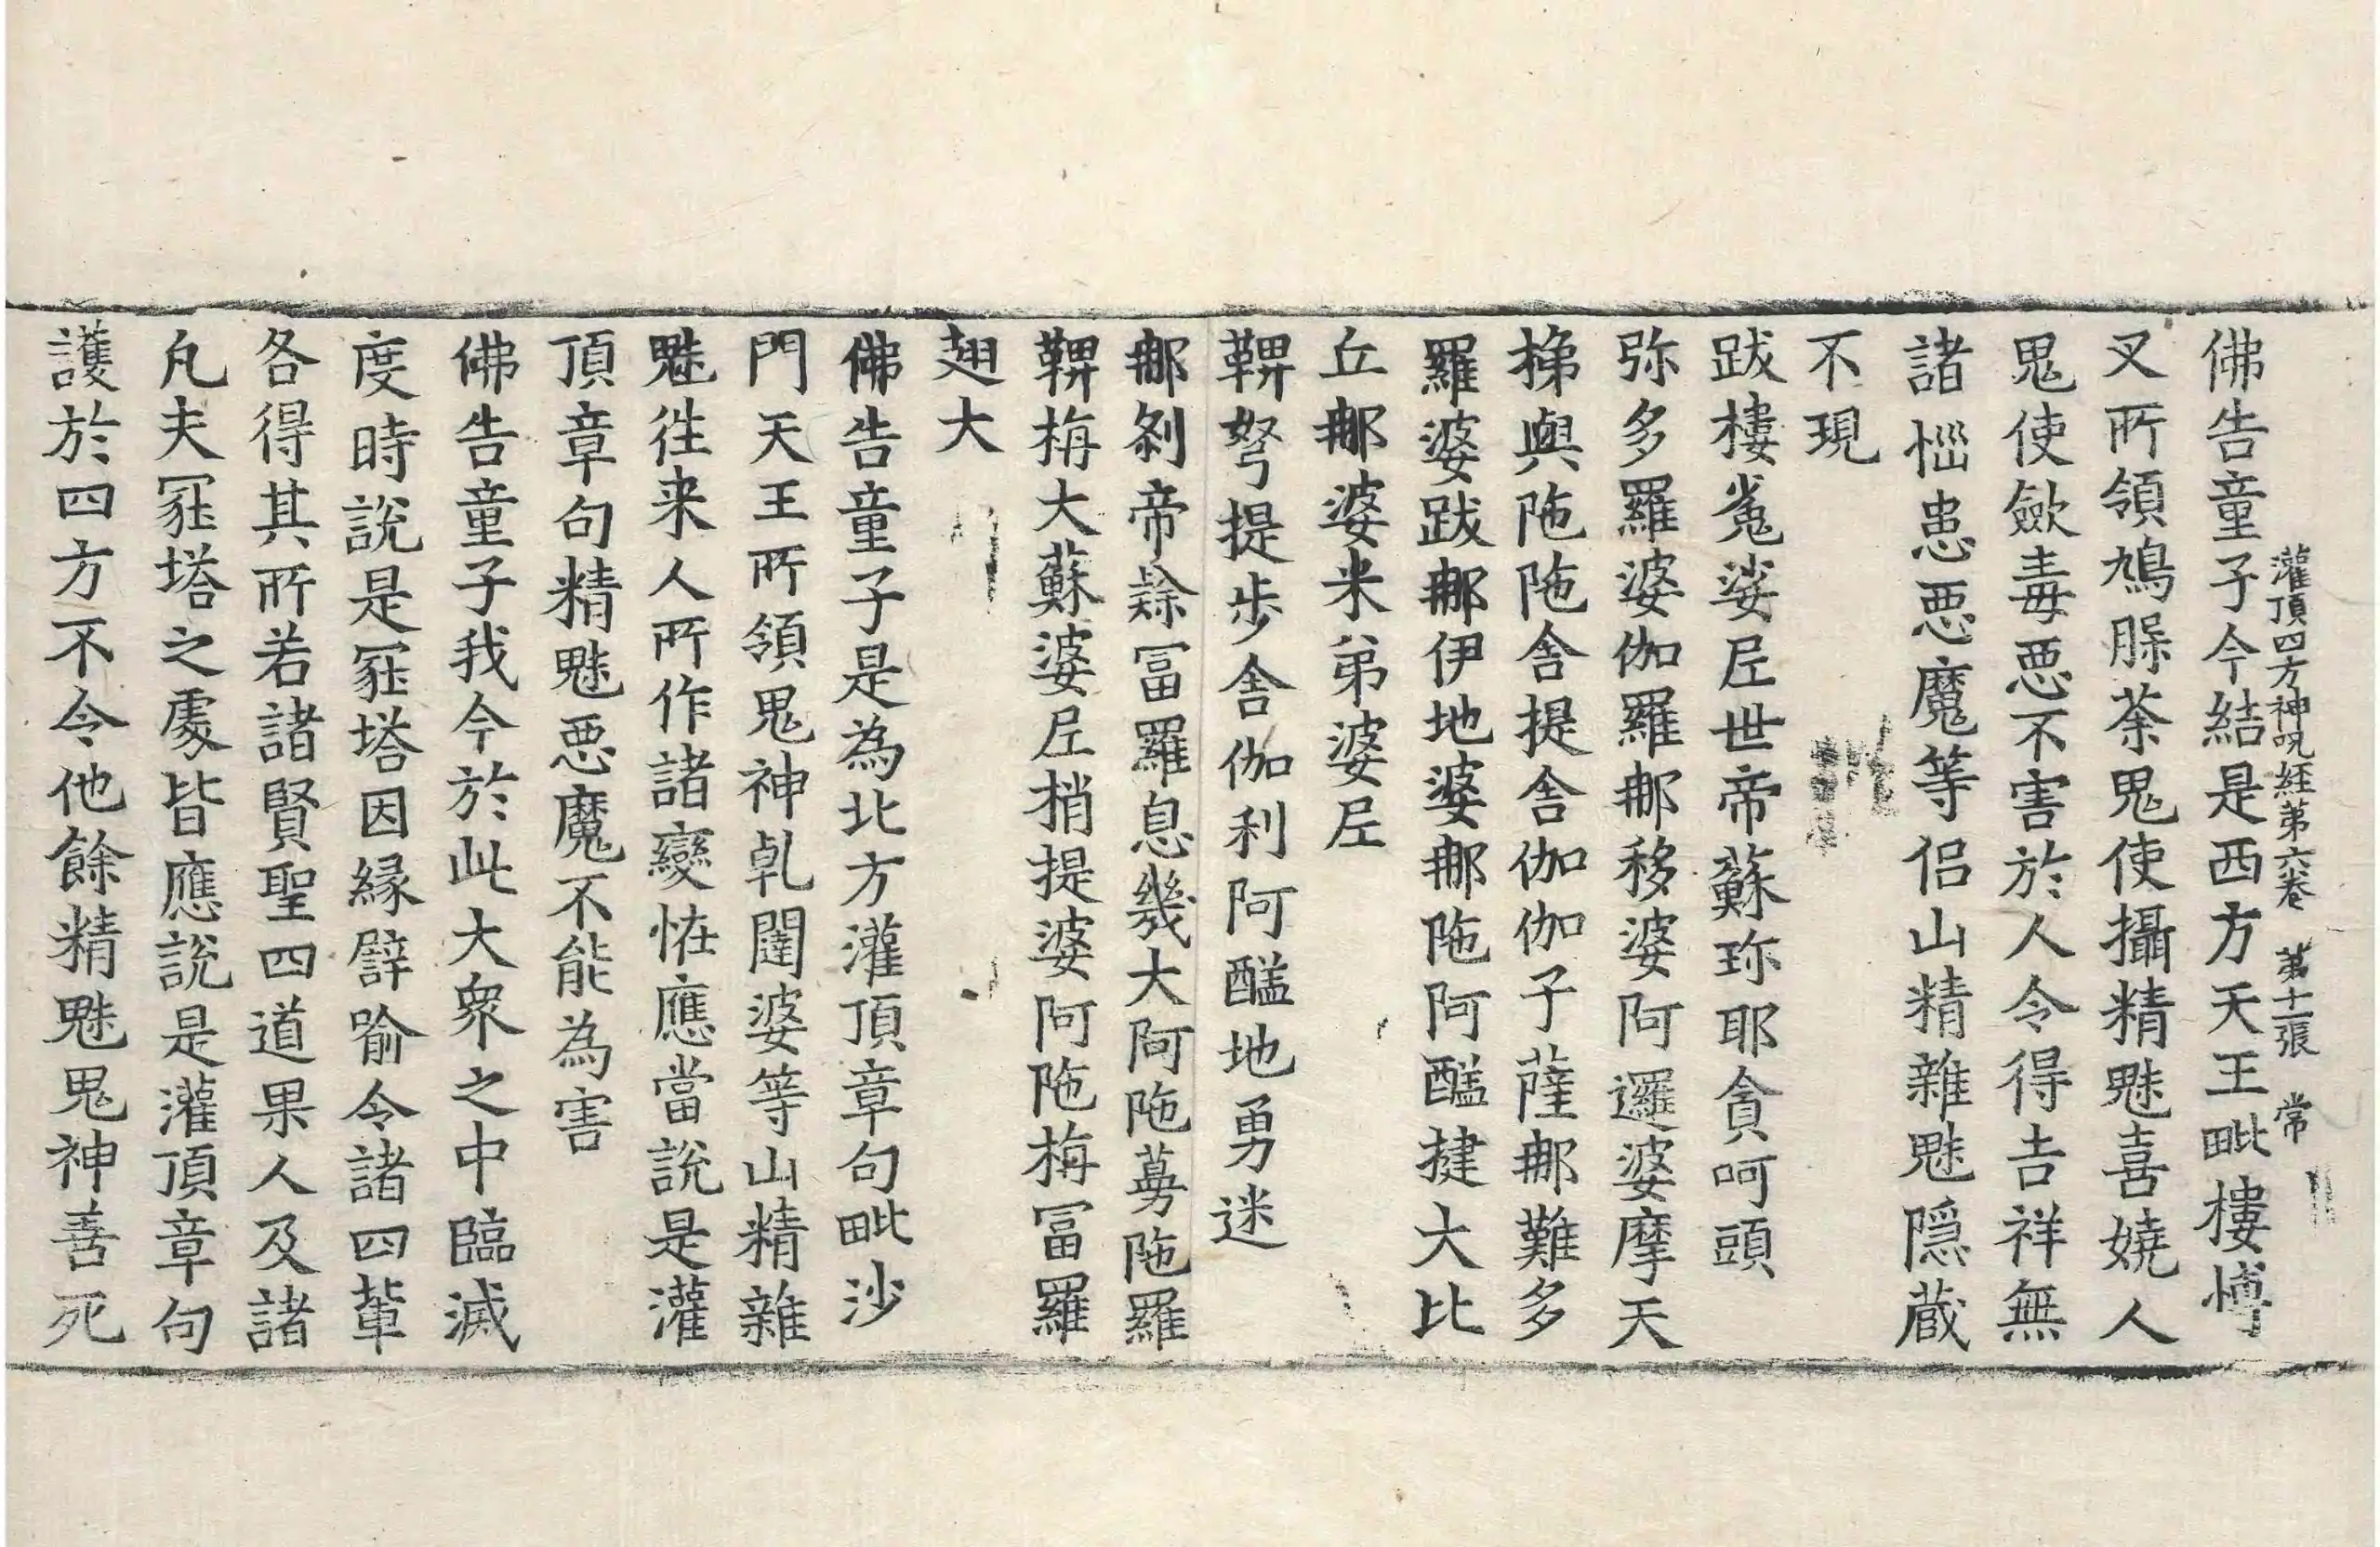 灌頂四方神呪経苐六卷 苐十一張 常
佛告童子今結是西方天王毗樓愽
叉所領鳩䐢荼鬼使攝精魅喜嬈人
鬼使斂毒惡不害於人令得吉祥無
諸惱患惡魔等侣山精雜魅隠蔵
不現
跋樓㝹娑𡰱世帝蘇珎耶貪呵頭
弥多羅婆伽羅𨙻移婆阿邏婆摩天
挮與陁陁舎提舎伽伽子薩𨙻難多
羅婆跋𨙻伊地婆𨙻陁阿醯揵大比
丘𨙻婆米弟婆𡰱
鞞弩提步舎伽利阿醯地勇迷
𨙻剎帝賖冨羅息幾大阿陁蔓陁羅
鞞栴大蘇婆𡰱梢提婆阿陁栴冨羅
翅大
佛告童子是為北方灌頂章句毗沙
門天王所領鬼神乹闥婆等山精雜
魅徃来人所作諸變恠應當說是灌
頂章句精魅惡魔不能為害
佛告童子我今於此大衆之中臨滅
度時說是冢塔因縁譬喻令諸四輩
各得其所若諸賢聖四道果人及諸
凡夫冢塔之處皆應說是灌頂章句
護於四方不令他餘精魅鬼神善死